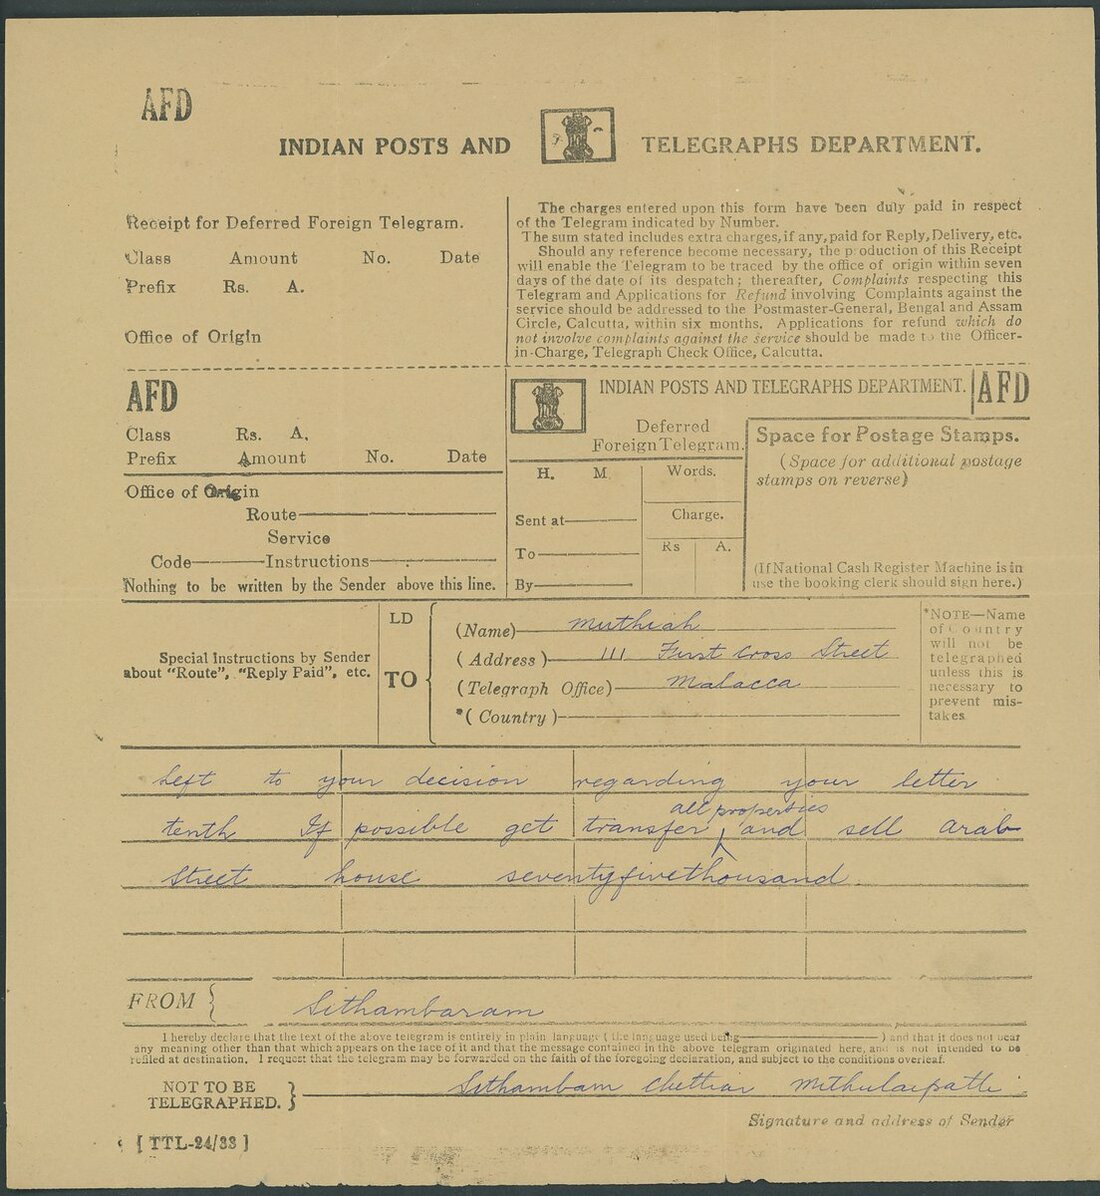 AFD
INDIAN POSTS AND TELEGRAPHS DEPARTMENT.
Receipt for Deferred Foreign Telegram.
Class Amount No. Date
Prefix Rs. A.
Office of Origin
The charges entered upon this form have been duly paid in respect
of the Telegram indicated by Number.
The sum stated includes extra charges, if any, paid for Reply, Delivery, etc.
Should any reference become necessary, the production of this Receipt
will enable the Telegram to be traced by the office of origin within seven
days of the date of its despatch; thereafter, Complaints respecting this
Telegram and Applications for Refund involving Complaints against the
service should be addressed to the Postmaster-General, Bengal and Assam
Circle, Calcutta, within six months. Applications for refund which do
not involve complaints against the service should be made to the Officer-
in-Charge, Telegraph Check Office, Calcutta.
AFD
Class Rs. A.
Prefix Amount No. Date
Office of Origin
Route
Service
Code Instructions
Nothing to be written by the Sender above this line.
INDIAN POSTS AND TELEGRAPHS DEPARTMENT. AFD
Deferred
Foreign Telegram.
H. M. Words.
Sent at Charge.
To Rs A.
By
Space for Postage Stamps.
(Space for additional postage
stamps on reverse)
(If National Cash Register Machine is in
use the booking clerk should sign here.)
Special Instructions by Sender
about "Route", "Reply Paid", etc.
LD
TO
(Name) Muthiah
(Address) 111 First Cross Street
(Telegraph Office) Malacca
*(Country)
*NOTE—Name
of Country
will not be
telegraphed
unless this is
necessary to
prevent mis-
takes
Left to your decision regarding your letter
all properties
tenth If possible get transfer and sell Arab
Street house seventyfivethousand
FROM Sithambaram
I hereby declare that the text of the above telegram is entirely in plain language ( the language used being ) and that it does not bear
any meaning other than that which appears on the face of it and that the message contained in the above telegram originated here, and is not intended to be
refiled at destination. I request that the telegram may be forwarded on the faith of the foregoing declaration, and subject to the conditions overleaf.
NOT TO BE
TELEGRAPHED. Sithambam Chettiar Mithulaipatti
Signature and address of Sender
[ TTL-24/33 ]